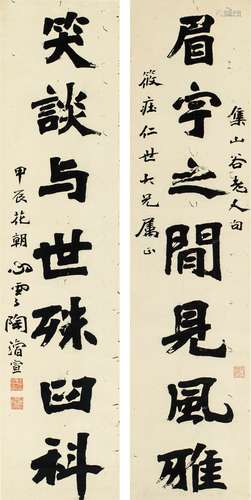 集山谷老人句
眉宇之閒見風雅
筱莊仁世大兄属正
笑談与世殊臼科
甲辰花朝心雲陶濬宣